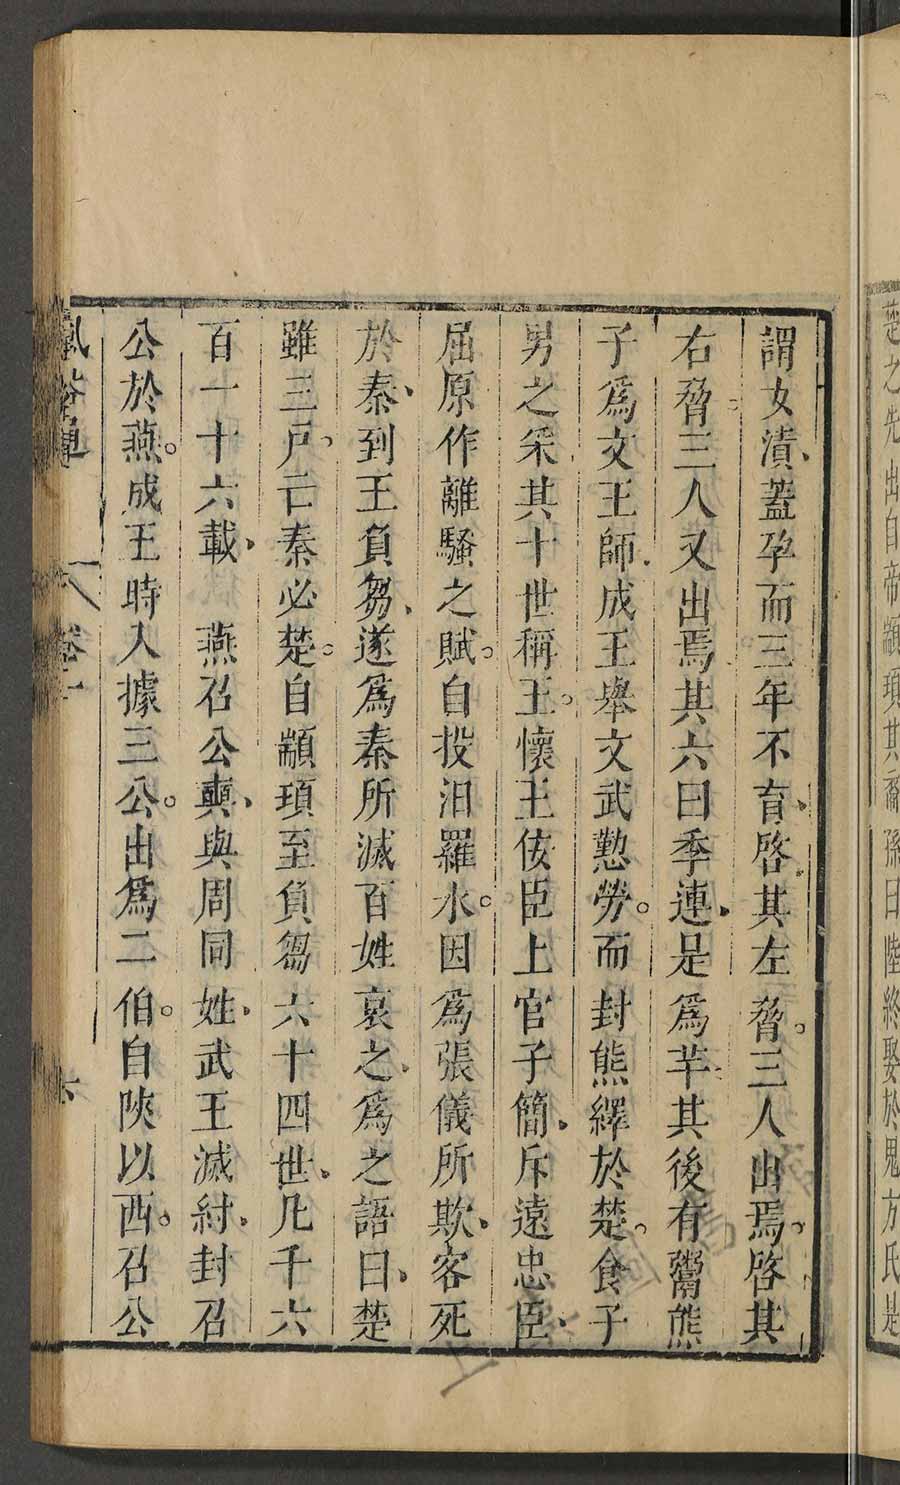 楚之先出自帝顓頊其裔孫曰陸終娶於鬼方氏是
謂女潰蓋孕而三年不育啓其左脅三人出焉啓其
右脅三人又出焉其六曰季連是爲羋其後有鬻熊
子爲文王師成王舉文武懃勞而封熊繹於楚食子
男之采其十世稱王懷王佞臣上官子簡斥遠忠臣
屈原作離騷之賦自投汨羅水因爲張儀所欺客死
於秦到王負芻遂爲秦所滅百姓哀之爲之語曰楚
雖三戶亡秦必楚自顓頊至負芻六十四世凡千六
百一十六載　燕召公奭與周同姓武王滅紂封召
公於燕成王時入據三公出爲二伯自陝以西召公
風俗通　卷一　六